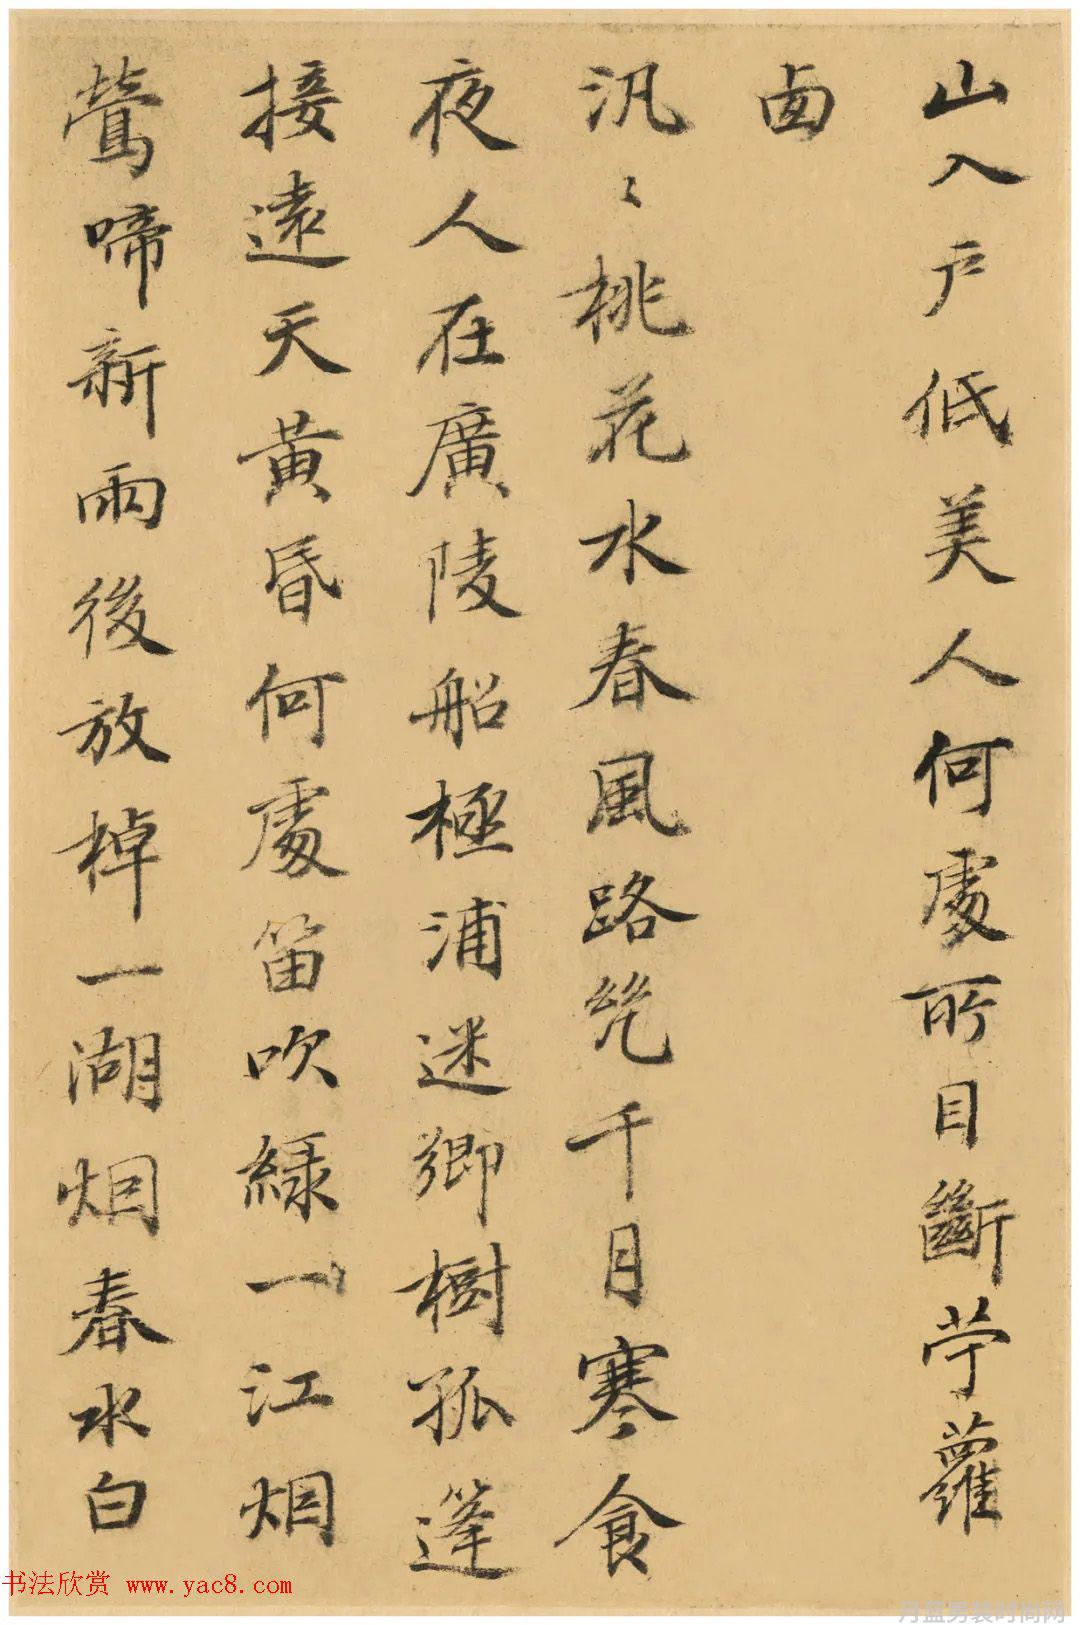 山入戶低美人何處所目斷苧蘿
西
汎〻桃花水春風路絶千月寒食
夜人在廣陵船極浦迷鄉樹孤篷
接遠天黃昏何處笛吹綠一江烟
鶯啼新雨後放棹一湖烟春水白
书法欣赏 www.yac8.com